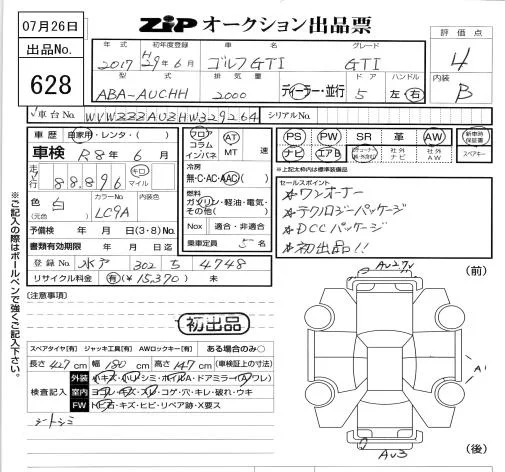 07月26日
ZiP オークション出品票
出品No.
628
年式 初年度登録 車名 グレード
2017 H29年6月 ゴルフGTI GTI
型式 排気量 ドア ハンドル
ABA-AUCHH 2000 ディーラー・並行 5 左・右
評価点
4
内装
B
車台No. WVWZZZAUZHW329264 シリアルNo.
車歴 自家用・レンタ・( )
車検 R8年6月
走行 88,896 キロ マイル
色 白 (元色) カラーNo. LC9A 内装色
予備検 年 月 日(3・8)No.
書類有効期限 年 月 日迄
登録No. 水戸 302 ち 4748
リサイクル料金 有(¥15,370) 未
フロア コラム インパネ AT MT 速
冷房
無・C・AC・AAC( )
燃料
ガソリン・軽油・電気・その他( )
Nox 適合・非適合
乗車定員 5名
PS PW SR 革 AW
ナビ エアB 社外ナビ 社外AW
新車時保証書
スペアキー
※上記太枠内は標準装備品
セールスポイント
*ワンオーナー
*テクノロジーパッケージ
*DCCパッケージ
*初出品!!
※ご記入の際はボールペンで強くご記入下さい。
[注意事項]
初出品
スペアタイヤ[有] ジャッキ工具[有] AWロックキー[有] ある場合のみ○
長さ 427 cm 幅 180 cm 高さ 147 cm (車検証上の寸法)
検査記入
外装 小キズ・小ハ・シミ・ホイルA・ドアミラー(A・ワレ)
室内 ヨゴレ・キズ・スレ・コゲ・穴・キレ・破れ・ウキ
FW トビ石・キズ・ヒビ・リペア跡・X要ス
シートシミ
(前)
A1
(後)
AU3